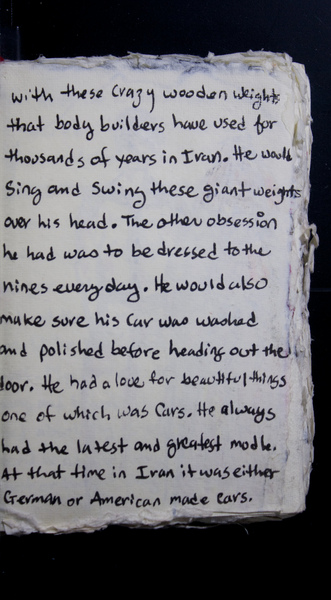 with these crazy wooden weights
that body builders have used for
thousands of years in Iran. He would
Sing and Swing these giant weights
over his head. The other obsession
he had was to be dressed to the
nines everyday. He would also
make sure his car was washed
and polished before heading out the
door. He had a love for beautiful things
one of which was Cars. He always
had the latest and greatest modle.
At that time in Iran it was either
German or American made cars.